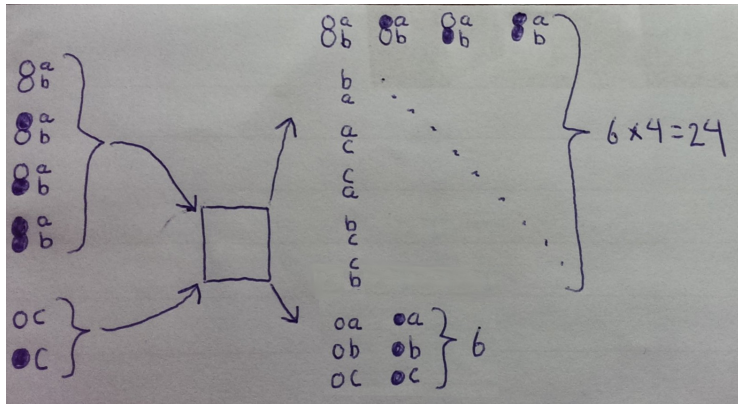 a a a a
b b b b
a
b
a
b
a
b
a
b
c
c
b
a
a
c
c
a
b
c
c
b
6 × 4 = 24
a a
b b
c c
6